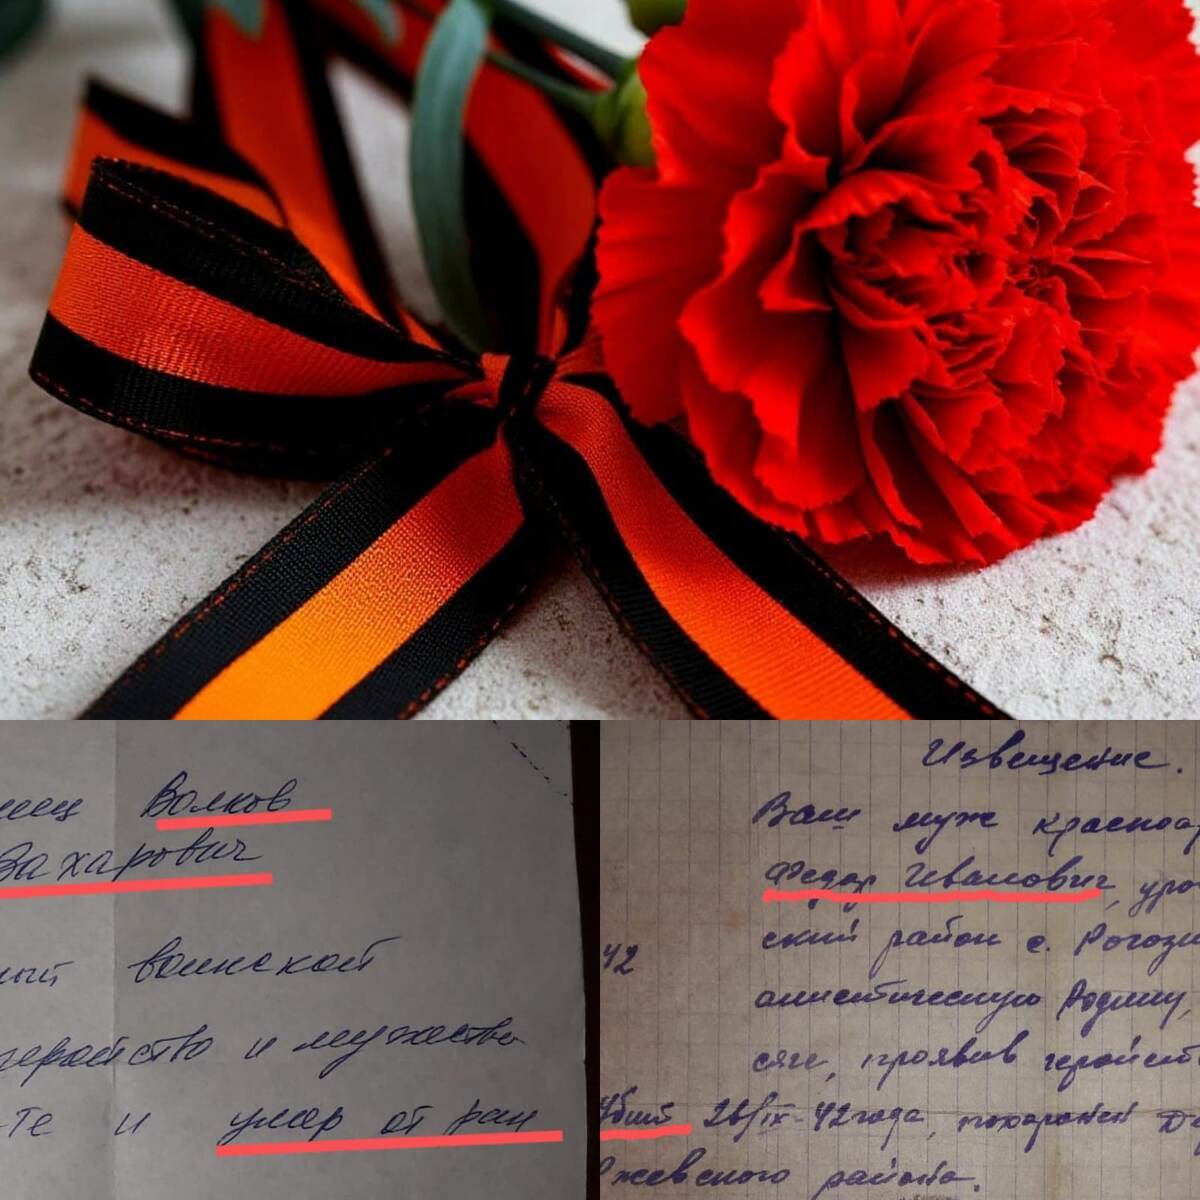 нец Волков
Захарович
ный воинской
геройство и мужество
-те и умер от ран
Извещение.
Ваш муж красноар
Федор Иванович, уро
ский район с. Рогози
42
алистическую Родину,
сяге, проявив геройств
Убит 26/IX-42 года, похоронен Де
Ржевского района.